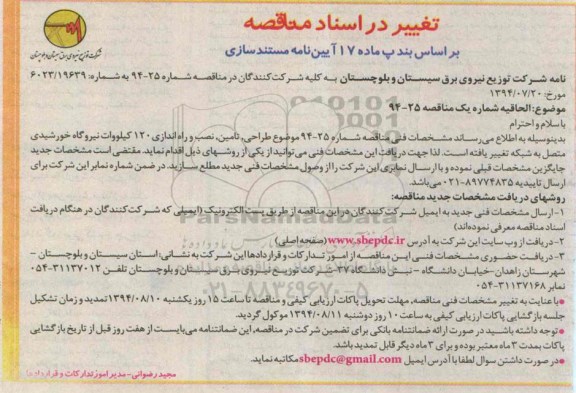 تغییر در اسناد مناقصه
بر اساس بند پ ماده ۱۷ آیین‌نامه مستندسازی
شرکت توزیع نیروی برق سیستان و بلوچستان
نامه شرکت توزیع نیروی برق سیستان و بلوچستان به کلیه شرکت‌کنندگان در مناقصه شماره ۲۵-۹۴ به شماره: ۶۰۲۳/۱۹۶۳۹
مورخ: ۱۳۹۴/۰۷/۲۰
موضوع: الحاقیه شماره یک مناقصه ۲۵-۹۴
با سلام و احترام
بدینوسیله به اطلاع می‌رساند مشخصات فنی مناقصه شماره ۲۵-۹۴ موضوع طراحی، تامین، نصب و راه اندازی ۱۲۰ کیلووات نیروگاه خورشیدی
متصل به شبکه تغییر یافته است. لذا جهت دریافت این مشخصات فنی می‌توانید از یکی از روشهای ذیل اقدام نماید. مقتضی است مشخصات جدید
جایگزین مشخصات قبلی نموده و با ارسال نمابری این شرکت را از وصول مشخصات فنی جدید مطلع سازید. در ضمن شماره نمابر این شرکت برای
ارسال تاییدیه ۸۹۷۷۴۸۳۵-۰۲۱ می‌باشد.
روشهای دریافت مشخصات جدید مناقصه:
۱- ارسال مشخصات فنی جدید به ایمیل شرکت کنندگان در این مناقصه از طریق پست الکترونیک (ایمیلی که شرکت‌کنندگان در هنگام دریافت
اسناد مناقصه معرفی نموده‌اند)
۲- دریافت از وب سایت این شرکت به آدرس www.sbepdc.ir (صفحه اصلی)
۳- دریافت حضوری مشخصات فنی این مناقصه از امور تدارکات و قراردادها این شرکت به نشانی: استان سیستان و بلوچستان -
شهرستان زاهدان - خیابان دانشگاه - نبش دانشگاه ۳۷ - شرکت توزیع نیروی برق سیستان و بلوچستان تلفن ۳۱۱۳۷۰۱۲-۰۵۴
نمابر ۳۱۱۳۷۱۶۸-۰۵۴
● با عنایت به تغییر مشخصات فنی مناقصه، مهلت تحویل پاکات ارزیابی کیفی و مناقصه تا ساعت ۱۵ روز یکشنبه ۱۳۹۴/۰۸/۱۰ تمدید و زمان تشکیل
جلسه بازگشایی پاکات ارزیابی کیفی به ساعت ۱۰ روز دوشنبه ۱۳۹۴/۰۸/۱۱ موکول گردید.
● توجه داشته باشید در صورت ارائه ضمانتنامه بانکی برای تضمین شرکت در مناقصه، این ضمانتنامه می‌بایست از هفت روز قبل از تاریخ بازگشایی
پاکات بمدت ۳ ماه معتبر بوده و برای ۳ ماه دیگر قابل تمدید باشد.
● در صورت داشتن سوال لطفا با آدرس ایمیل sbepdc@gmail.com مکاتبه نماید.
مجید رضوانی - مدیر امور تدارکات و قراردادها
ParsNamadData
۰۲۱-۸۸۳۴۹۶۷۰-۵